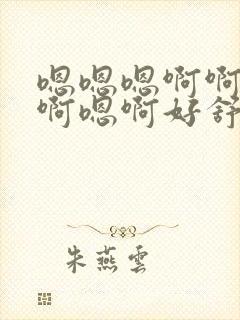 嗯嗯嗯啊啊
啊嗯啊好舒
朱燕雲